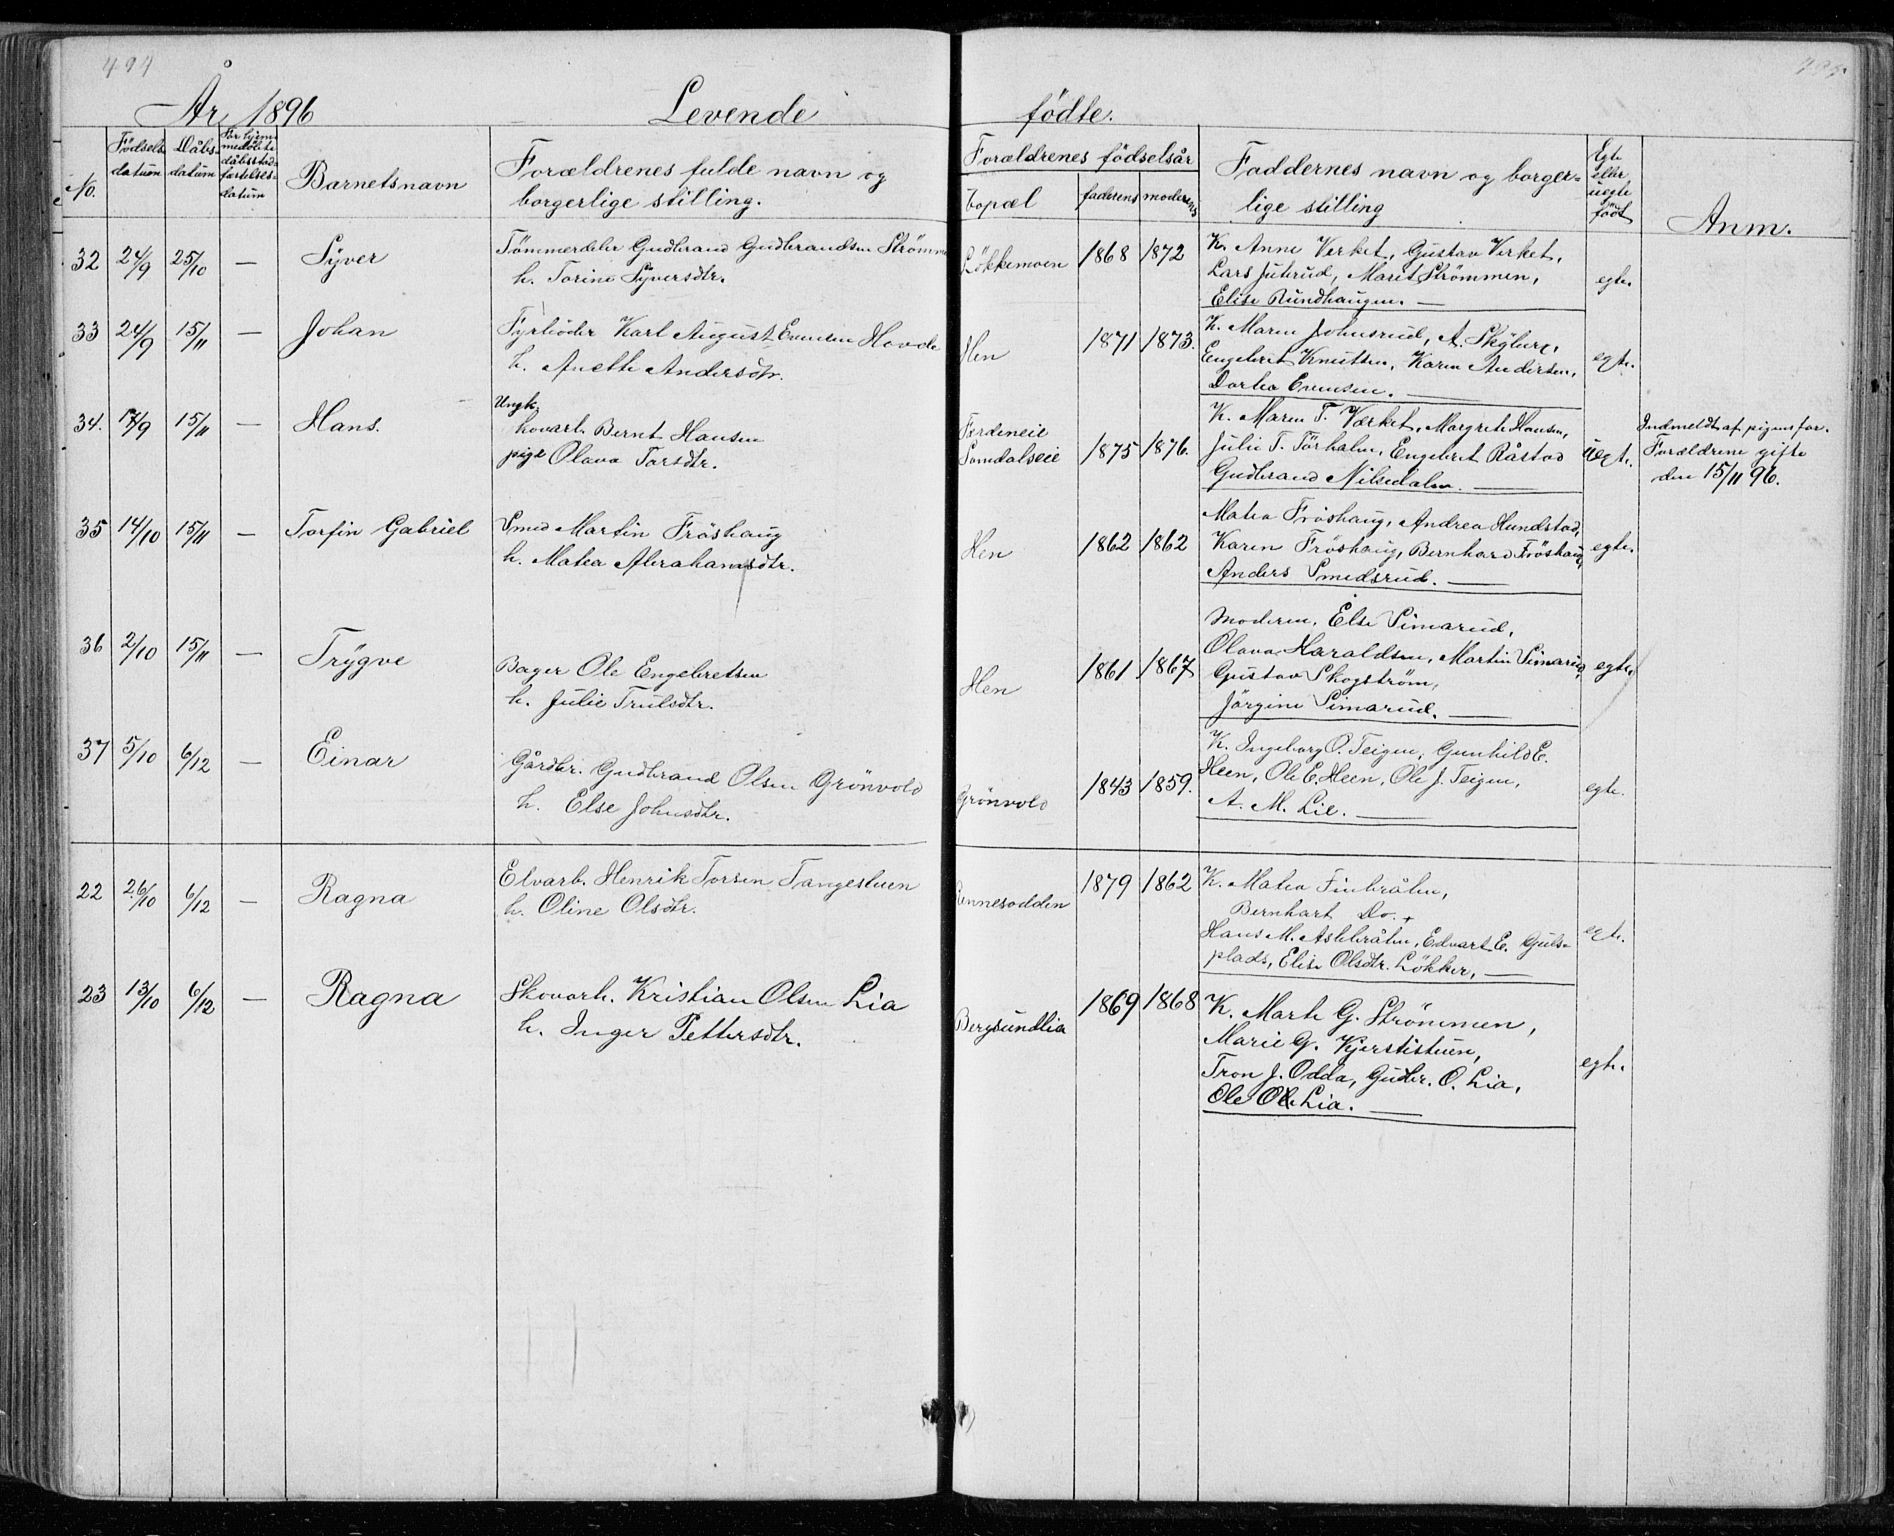 494
År 1896 Levende fødte.
No. Fødsels datum Dåbs datum Barnets navn Forældrenes fulde navn og borgerlige stilling. Forældrenes fødselsår Bopæl faderens moderens Faddernes navn og borgerlige stilling Egte eller uegte født Anm.
32 24/9 25/10 — Syver
Tømmerdeler Gudbrand Gudbrandsen Strømmen
h. Torine Syversdtr.
Løkkemoen 1868 1872
K. Anne Verket, Gustav Verket,
Lars Juterud, Marit Strømmen,
Elise Rundhaugen. —
egte.
33 24/9 15/11 — Johan
Fyrbøder Karl August Evensen Hovde
h. Anette Andersdtr.
Hen 1871 1873.
K. Maren Johnsrud, A. Skjøberg,
Engebret Knutsen, Karen Andersen,
Dorthea Evensen. —
egte.
34. 17/9 15/11 — Hans.
Ungk.
skovarb. Bernt Hansen
pige Olava Torsdtr.
Somdalseie 1875 1876.
K. Maren T. Værket, Margrete Hansen,
Julie T. Engebret Råstad
Gudbrand Nilsedalen. —
uegt.
Indmeldt af pigens far.
Forældrene gifte
den 15/11 96.
35 14/10 15/11 — Torfin Gabriel
Smed Martin Frøshaug
h. Matea Abrahamsdtr.
Hen 1862 1862
Matea Frøshaug, Andrea Hundstad,
Karen Frøshaug, Bernhard Frøshaug,
Anders Smedsrud. —
egte.
36 2/10 15/11 — Trygve
Bager Ole Engebretsen
h. Julie Trulsdtr.
Hen 1861 1867
Moderen, Else Simarud,
Olava Haraldsen, Martin Simarud,
Gustav Skogstrøm,
Jørgine Simarud. —
egte.
37 5/10 6/12 — Einar
Gårdbr. Gudbrand Olsen Grønvold
h. Else Johnsdtr.
Grønvold 1843 1859.
K. Ingeborg O. Teigen, Gunhild E.
Heen, Ole E. Heen, Ole J. Teigen,
A. M. Lie. —
egte.
22 26/10 6/12 — Ragna
Elvarb. Henrik Torsen Tangestuen
h. Oline Olsdtr.
Ennesodden 1879 1862
K. Matea Finbråten,
Bernhart Do.
Hans M. Askbråten, Edvart E. Guls-
plads, Elise Olsdtr. Løkker, —
egt.
23 13/10 6/12 — Ragna
Skovarb. Kristian Olsen Lia
h. Inger Pettersdtr.
Bergsundlia 1869 1868
K. Marte G. Strømmen,
Marie G. Kjerstistuen,
Tron J. Odda, Gudbr. O. Lia,
Ole O. Lia. —
egte.